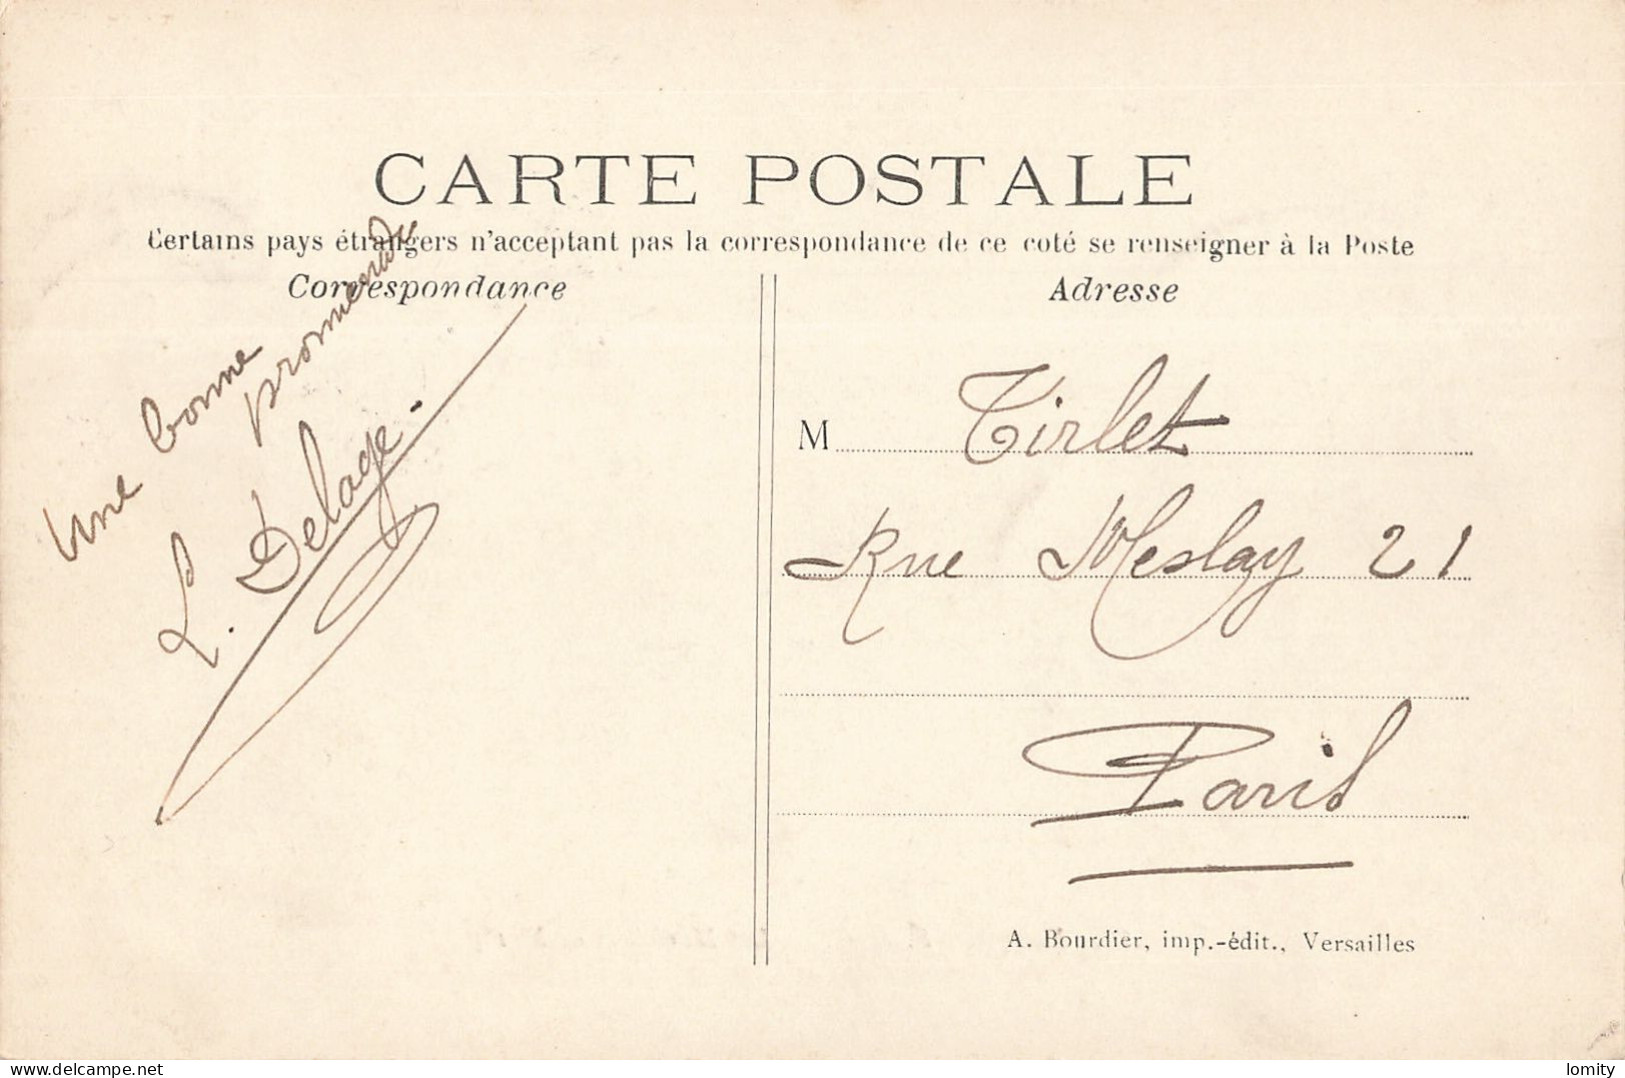 CARTE POSTALE
Certains pays étrangers n'acceptant pas la correspondance de ce coté se renseigner à la Poste
Correspondance
Une bonne
promenade
L. Delage.
Adresse
M Tirlet
Rue Meslay 21
Paris
A. Bourdier, imp.-édit., Versailles
delcampe.net
lomity